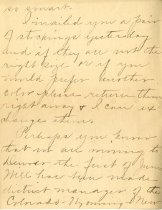 so smart.
I mailed you a pair
of stockings yesterday
and if they are not the
right size or if you
would prefer another
color please return them
right away & I can ex
change them.
Perhaps you know
that we are moving to
Denver the first of June
Will has been made
district manager of the
Colorado - Wyoming & New